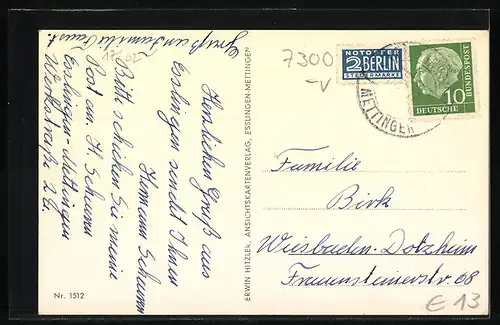 Gruß an Familie Faust
Herzlichen Gruß aus
Esslingen sendet Ihnen
Hermann Schumm
Bitte schicken Sie meine
Post an H. Schumm
Esslingen-Mettingen
ERWIN HITZLER, ANSICHTSKARTENVERLAG, ESSLINGEN-METTINGEN
Nr. 1512
7300
-V
NOTOPFER
2 BERLIN
STEUERMARKE
METTINGEN
DEUTSCHE
BUNDESPOST
10
Familie
Birk
Wiesbaden-Dotzheim
Frauensteinerstr. 68
€ 13